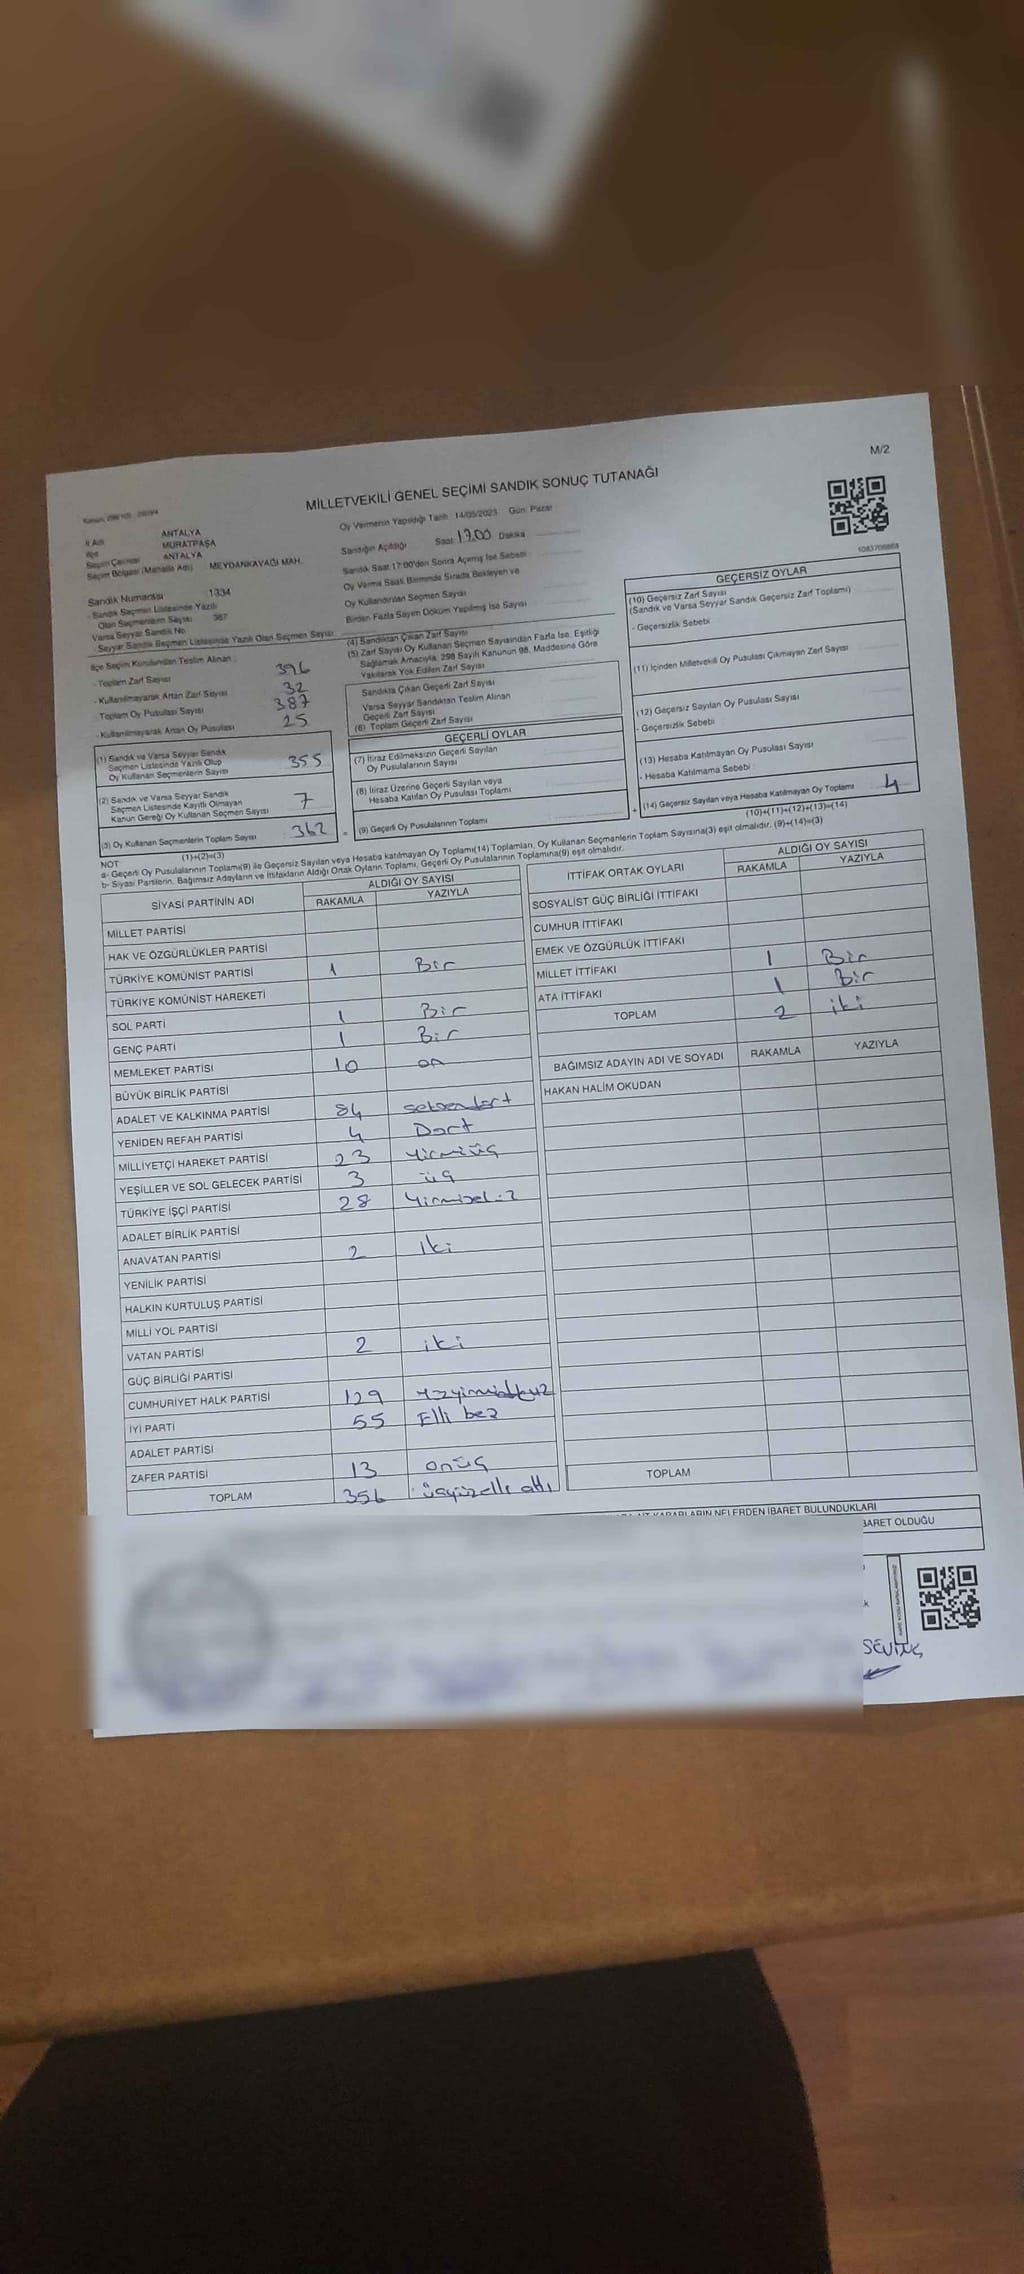 M/2
MİLLETVEKİLİ GENEL SEÇİMİ SANDIK SONUÇ TUTANAĞI
İl Adı ANTALYA
İlçe MURATPAŞA
Seçim Çevresi ANTALYA
Seçim Bölgesi (Mahalle Adı) MEYDANKAVAĞI MAH.
Sandık Numarası 1334
- Sandık Seçmen Listesinde Yazılı
Olan Seçmenlerin Sayısı 387
Varsa Seyyar Sandık No
- Seyyar Sandık Seçmen Listesinde Yazılı Olan Seçmen Sayısı
Oy Vermenin Yapıldığı Tarih 14/05/2023 Gün: Pazar
Sandığın Açıldığı Saat 17.00 Dakika
Sandık Saat 17:00'den Sonra Açılmış İse Sebebi
Oy Verme Saati Bitiminde Sırada Bekleyen ve
Oy Kullandırılan Seçmen Sayısı
Birden Fazla Sayım Döküm Yapılmış İse Sayısı
1083766868
İlçe Seçim Kurulundan Teslim Alınan
- Toplam Zarf Sayısı 396
- Kullanılmayarak Artan Zarf Sayısı 32
Toplam Oy Pusulası Sayısı 387
- Kullanılmayarak Artan Oy Pusulası 25
(1) Sandık ve Varsa Seyyar Sandık
Seçmen Listesinde Yazılı Olup
Oy Kullanan Seçmenlerin Sayısı 355
(2) Sandık ve Varsa Seyyar Sandık
Seçmen Listesinde Kayıtlı Olmayan
Kanun Gereği Oy Kullanan Seçmen Sayısı 7
(3) Oy Kullanan Seçmenlerin Toplam Sayısı 362
(1)+(2)=(3)
(4) Sandıktan Çıkan Zarf Sayısı
(5) Zarf Sayısı Oy Kullanan Seçmen Sayısından Fazla İse, Eşitliği
Sağlamak Amacıyla, 298 Sayılı Kanunun 98. Maddesine Göre
Yakılarak Yok Edilen Zarf Sayısı
Sandıkta Çıkan Geçerli Zarf Sayısı
Varsa Seyyar Sandıktan Teslim Alınan
Geçerli Zarf Sayısı
(6) Toplam Geçerli Zarf Sayısı
GEÇERLİ OYLAR
(7) İtiraz Edilmeksizin Geçerli Sayılan
Oy Pusulalarının Sayısı
(8) İtiraz Üzerine Geçerli Sayılan veya
Hesaba Katılan Oy Pusulası Toplamı
= (9) Geçerli Oy Pusulalarının Toplamı +
GEÇERSİZ OYLAR
(10) Geçersiz Zarf Sayısı
(Sandık ve Varsa Seyyar Sandık Geçersiz Zarf Toplamı)
- Geçersizlik Sebebi
(11) İçinden Milletvekili Oy Pusulası Çıkmayan Zarf Sayısı
(12) Geçersiz Sayılan Oy Pusulası Sayısı
- Geçersizlik Sebebi
(13) Hesaba Katılmayan Oy Pusulası Sayısı
- Hesaba Katılmama Sebebi
(14) Geçersiz Sayılan veya Hesaba Katılmayan Oy Toplamı 4
(10)+(11)+(12)+(13)=(14)
NOT
a- Geçerli Oy Pusulalarının Toplamı(9) ile Geçersiz Sayılan veya Hesaba katılmayan Oy Toplamı(14) Toplamları, Oy Kullanan Seçmenlerin Toplam Sayısına(3) eşit olmalıdır. (9)+(14)=(3)
b- Siyasi Partilerin, Bağımsız Adayların ve İttifakların Aldığı Ortak Oyların Toplamı, Geçerli Oy Pusulalarının Toplamına(9) eşit olmalıdır.
SİYASİ PARTİNİN ADI ALDIĞI OY SAYISI
RAKAMLA YAZIYLA
MİLLET PARTİSİ
HAK VE ÖZGÜRLÜKLER PARTİSİ
TÜRKİYE KOMÜNİST PARTİSİ 1 Bir
TÜRKİYE KOMÜNİST HAREKETİ
SOL PARTİ 1 Bir
GENÇ PARTİ 1 Bir
MEMLEKET PARTİSİ 10 on
BÜYÜK BİRLİK PARTİSİ
ADALET VE KALKINMA PARTİSİ 84 seksendört
YENİDEN REFAH PARTİSİ 4 Dört
MİLLİYETÇİ HAREKET PARTİSİ 23 Yirmiüç
YEŞİLLER VE SOL GELECEK PARTİSİ 3 üç
TÜRKİYE İŞÇİ PARTİSİ 28 Yirmisekiz
ADALET BİRLİK PARTİSİ
ANAVATAN PARTİSİ 2 İki
YENİLİK PARTİSİ
HALKIN KURTULUŞ PARTİSİ
MİLLİ YOL PARTİSİ
VATAN PARTİSİ 2 iki
GÜÇ BİRLİĞİ PARTİSİ
CUMHURİYET HALK PARTİSİ 129 Yüzyirmidokuz
İYİ PARTİ 55 Elli beş
ADALET PARTİSİ
ZAFER PARTİSİ 13 onüç
TOPLAM 356 üçyüzelli altı
İTTİFAK ORTAK OYLARI ALDIĞI OY SAYISI
RAKAMLA YAZIYLA
SOSYALİST GÜÇ BİRLİĞİ İTTİFAKI
CUMHUR İTTİFAKI
EMEK VE ÖZGÜRLÜK İTTİFAKI
MİLLET İTTİFAKI 1 Bir
ATA İTTİFAKI 1 Bir
TOPLAM 2 iki
BAĞIMSIZ ADAYIN ADI VE SOYADI RAKAMLA YAZIYLA
HAKAN HALİM OKUDAN
TOPLAM
KARARLARIN NELERDEN İBARET BULUNDUKLARI
BARET OLDUĞU
SEVİNÇ